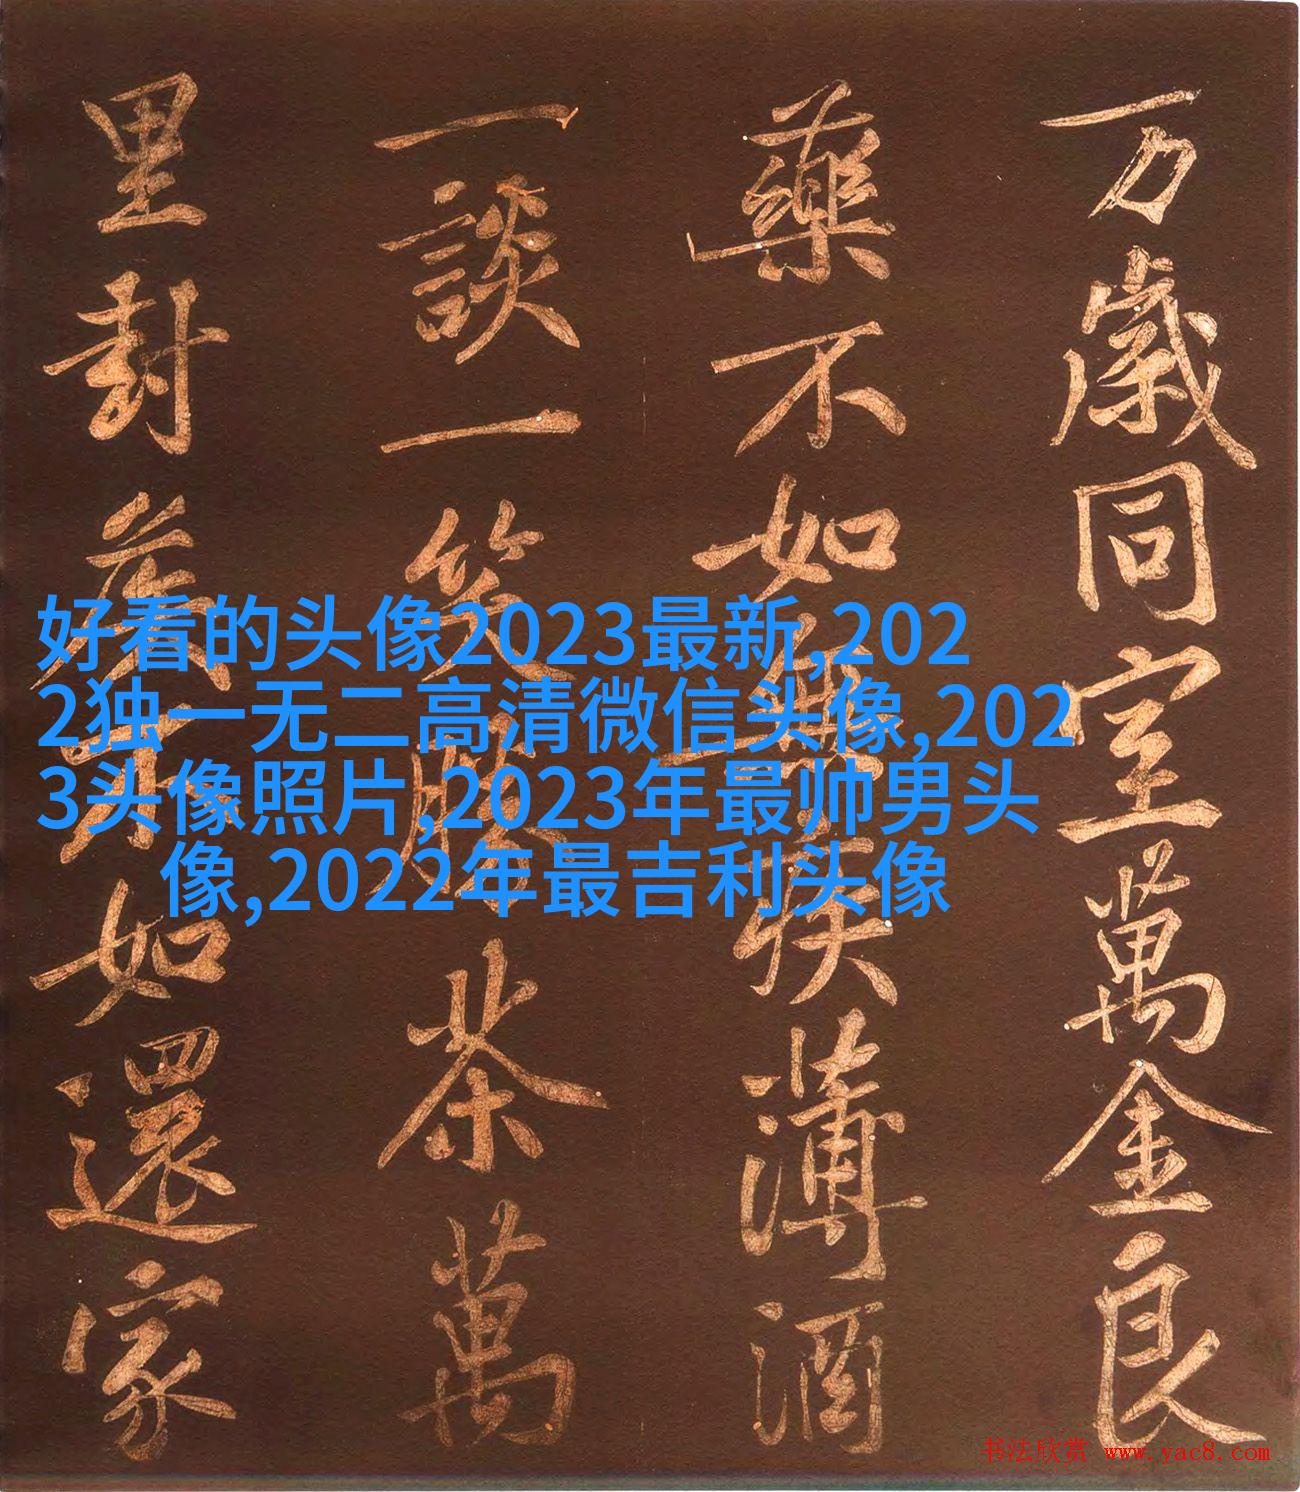 万歲同室萬金良
藥不如無疾薄酒
一談一笑勝茶萬
里封侯不如還家
好看的头像2023最新,202
2独一无二高清微信头像,202
3头像照片,2023年最帅男头
像,2022年最吉利头像
书法欣赏 www.yac8.com